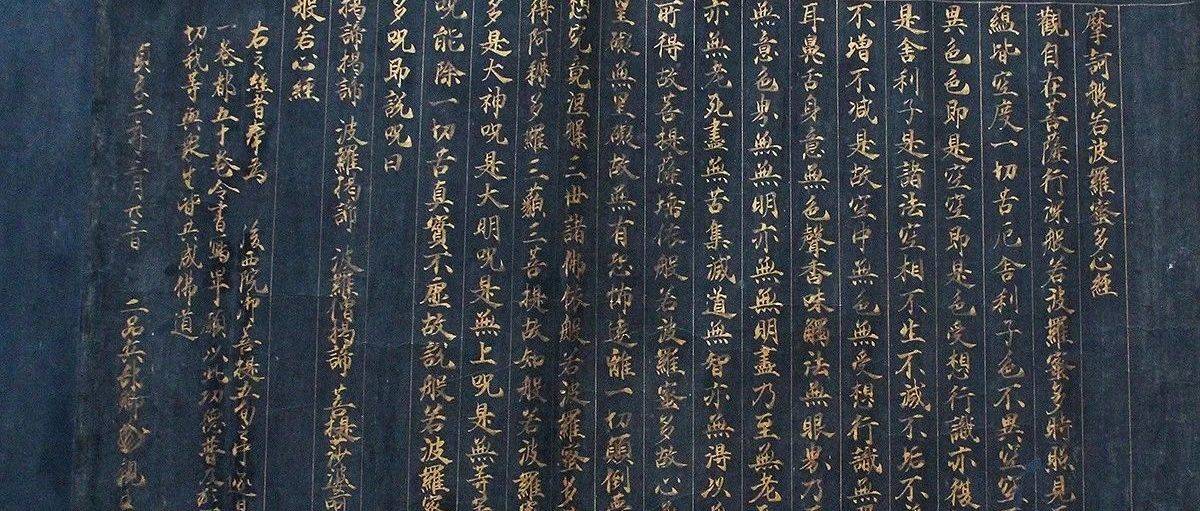 摩訶般若波羅蜜多心經
觀自在菩薩行深般若波羅蜜多時照見
蘊皆空度一切苦厄舍利子色不異空空
異色色即是空空即是色受想行識亦復
是舍利子是諸法空相不生不滅不垢不
不增不減是故空中無色無受想行識無
耳鼻舌身意無色聲香味觸法無眼界乃
無意色界無無明亦無無明盡乃至無老
亦無老死盡無苦集滅道無智亦無得以
所得故菩提薩埵依般若波羅蜜多故心
罣礙無罣礙故無有恐怖遠離一切顛倒
想究竟涅槃三世諸佛依般若波羅蜜多
得阿耨多羅三藐三菩提故知般若波羅
多是大神呪是大明呪是無上呪是無等
呪能除一切苦真實不虛故說般若波羅蜜
多呪即說呪曰
揭諦揭諦 波羅揭諦 波羅僧揭諦 菩提莎婆訶
般若心經
右之經者奉為 後西院御菩提五旬之中
一卷都五十卷今書寫畢願以此功德普及於
切我等與衆生皆共成佛道
貞享二年三月 二品 親王